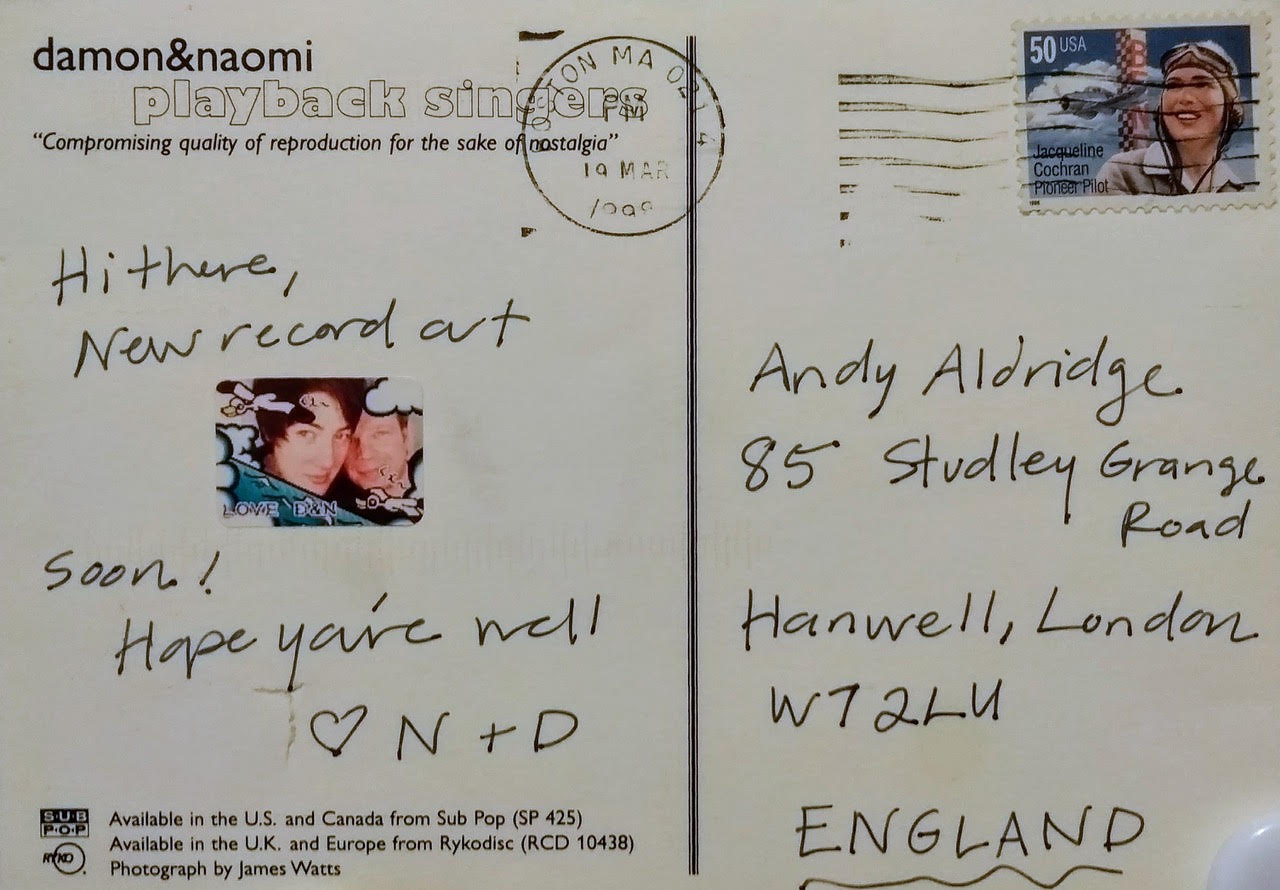 damon&naomi
playback singers
"Compromising quality of reproduction for the sake of nostalgia"
TON MA 021 4
PM
19 MAR
50 USA
Jacqueline
Cochran
Pioneer Pilot
Hi there,
New record out
LOVE D&N
Soon!
Hope you're well
♡ N + D
Andy Aldridge
85 Studley Grange
Road
Hanwell, London
W7 2LU
ENGLAND
SUB
POP
Available in the U.S. and Canada from Sub Pop (SP 425)
RYKO
Available in the U.K. and Europe from Rykodisc (RCD 10438)
Photograph by James Watts